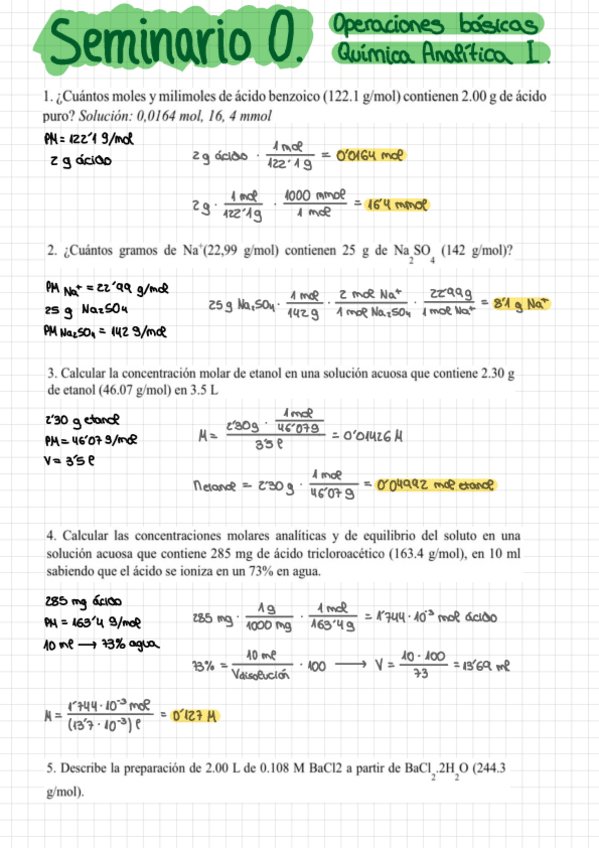 Seminario 0.
Operaciones básicas
Química Analítica I.
1. ¿Cuántos moles y milimoles de ácido benzoico (122.1 g/mol) contienen 2.00 g de ácido
puro? Solución: 0,0164 mol, 16, 4 mmol
PM = 122'1 g/mol
2 g ácido
2 g ácido · 1 mol / 122'1 g = 0'0164 mol
2 g · 1 mol / 122'1 g · 1000 mmol / 1 mol = 16'4 mmol
2. ¿Cuántos gramos de Na⁺(22,99 g/mol) contienen 25 g de Na₂SO₄ (142 g/mol)?
PM Na⁺ = 22'99 g/mol
25 g Na₂SO₄
PM Na₂SO₄ = 142 g/mol
25 g Na₂SO₄ · 1 mol / 142 g · 2 mol Na⁺ / 1 mol Na₂SO₄ · 22'99 g / 1 mol Na⁺ = 8'1 g Na⁺
3. Calcular la concentración molar de etanol en una solución acuosa que contiene 2.30 g
de etanol (46.07 g/mol) en 3.5 L
2'30 g etanol
PM = 46'07 g/mol
V = 3'5 l
M = 2'30 g · 1 mol / 46'07 g / 3'5 l = 0'01426 M
n etanol = 2'30 g · 1 mol / 46'07 g = 0'04992 mol etanol
4. Calcular las concentraciones molares analíticas y de equilibrio del soluto en una
solución acuosa que contiene 285 mg de ácido tricloroacético (163.4 g/mol), en 10 ml
sabiendo que el ácido se ioniza en un 73% en agua.
285 mg ácido
PM = 163'4 g/mol
10 ml → 73% agua
285 mg · 1 g / 1000 mg · 1 mol / 163'4 g = 1'744 · 10⁻³ mol ácido
73% = 10 ml / V disolución · 100 → V = 10 · 100 / 73 = 13'69 ml
M = 1'744 · 10⁻³ mol / (13'7 · 10⁻³) l = 0'127 M
5. Describe la preparación de 2.00 L de 0.108 M BaCl2 a partir de BaCl₂.2H₂O (244.3
g/mol).